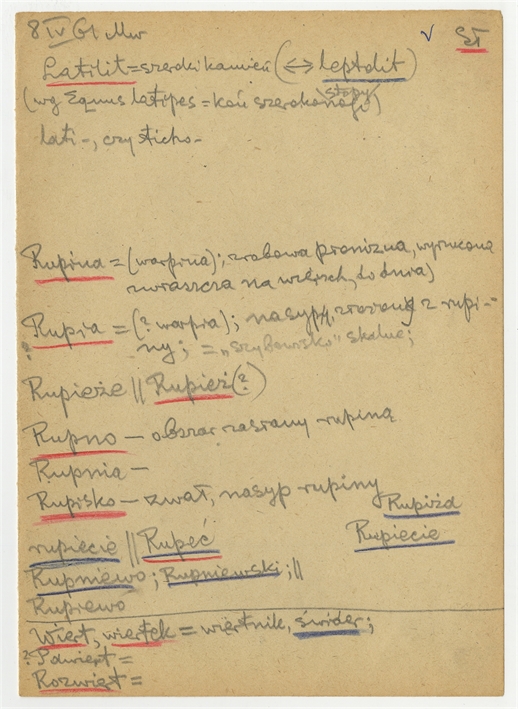 8 IV 61 Mw √ ST
Latilit = szeroki kamień (↔ leptolit)
(wg Equus latipes = koń szerokonogi) stopy
lati-, czy sticho-
Rupina = (warpina); zrobowa płonizna, wyrzucona
zwłaszcza na wierzch, do dnia)
Rupia = (? warpia); nasypy, złożony z rupi-
? ny; = „szybowisko" skalne;
Rupieże || Rupież (?)
Rupno — obszar zasłany rupiną
Rupnia —
Rupisko — zwał, nasyp rupiny
Rupiżd
rupiecie || Rupeć Rupiecie
Rupniewo; Rupniewski; ||
Rupiewo
Wiert, wiertek = wiertnik, świder;
? Powiert =
Rozwiert =